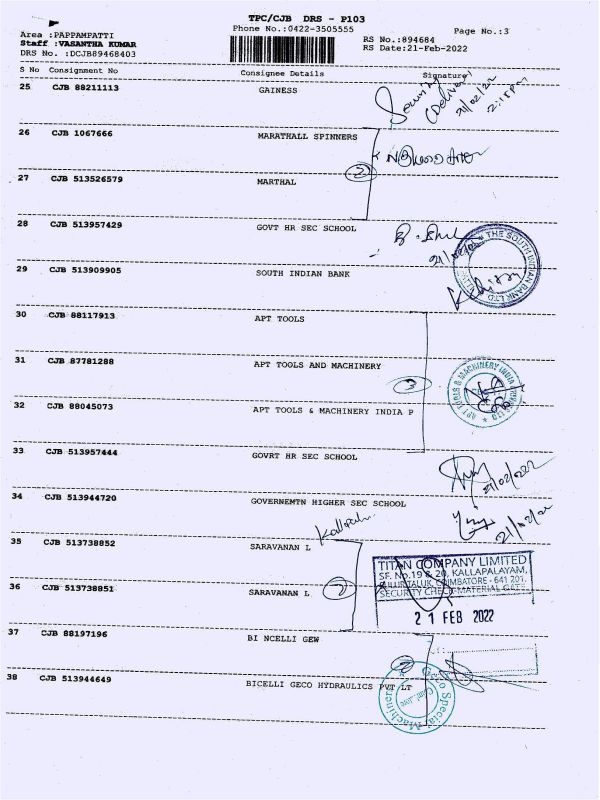 TPC/CJB DRS - P103
Phone No.:0422-3505555
Page No.:3
Area :PAPPAMPATTI
Staff :VASANTHA KUMAR
DRS No. :DCJB89468403
RS No.:894684
RS Date:21-Feb-2022
S No Consignment No Consignee Details Signature
25 CJB 88211113 GAINESS
21/02/22
2:15pm
26 CJB 1067666 MARATHALL SPINNERS
2
27 CJB 513526579 MARTHAL
28 CJB 513957429 GOVT HR SEC SCHOOL
THE SOUTH INDIAN BANK LTD
29 CJB 513909905 SOUTH INDIAN BANK
30 CJB 88117913 APT TOOLS
31 CJB 87781288 APT TOOLS AND MACHINERY
3
APT TOOLS & MACHINERY INDIA
32 CJB 88045073 APT TOOLS & MACHINERY INDIA P
33 CJB 513957444 GOVRT HR SEC SCHOOL
21/02/2022
34 CJB 513944720 GOVERNEMTN HIGHER SEC SCHOOL
21/02/22
35 CJB 513738852 SARAVANAN L
TITAN COMPANY LIMITED
SF. No.19 & 20, KALLAPALAYAM,
SULUR TALUK, COIMBATORE - 641 201.
SECURITY CHECK-MATERIAL GATE
36 CJB 513738851 SARAVANAN L
2
21 FEB 2022
37 CJB 88197196 BI NCELLI GEW
2
38 CJB 513944649 BICELLI GECO HYDRAULICS PVT LT
Geco Special Machines